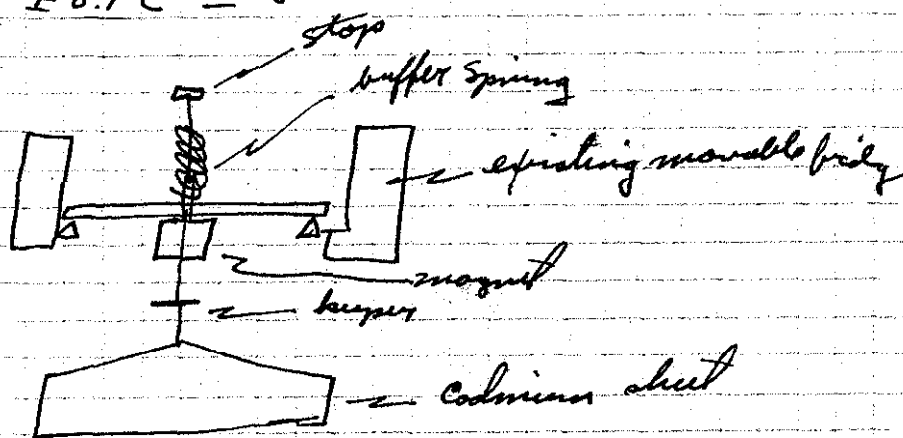 stop
buffer spring
existing movable bridg
magnet
keeper
Cadmium sheet